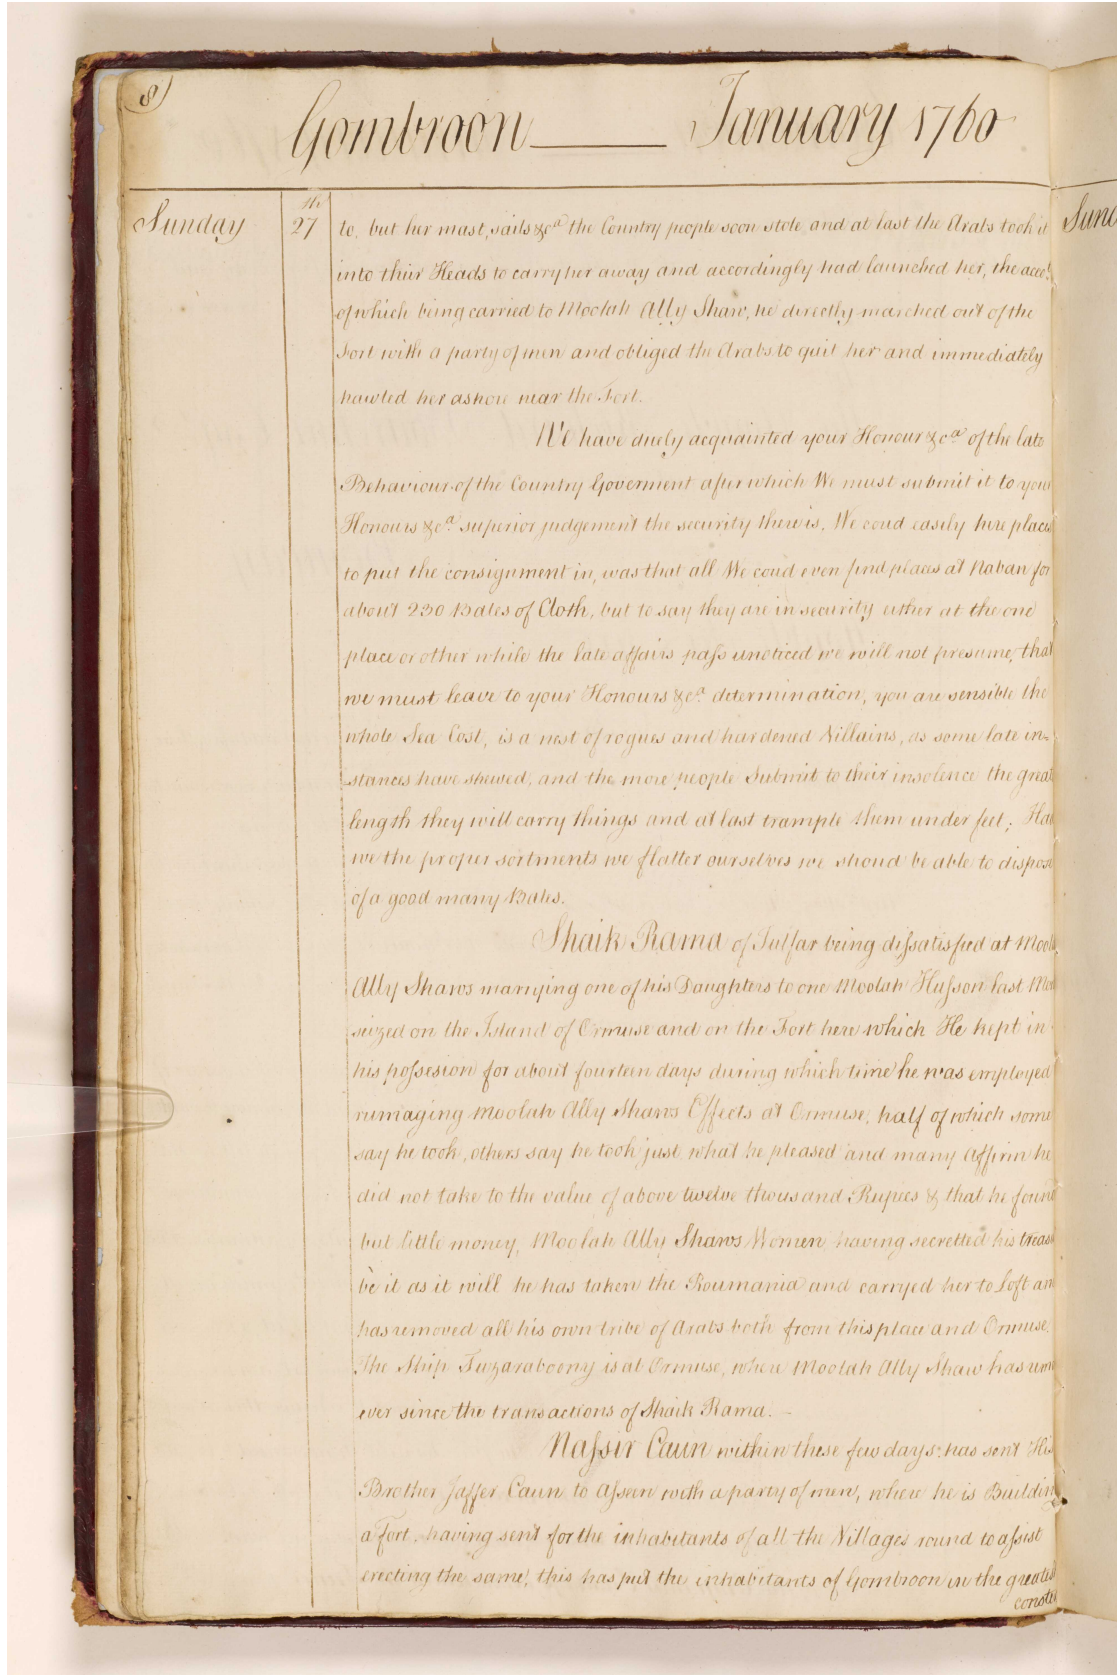 8
Gombroon January 1760
Sunday 27th to, but her mast, sails &ca the Country people soon stole, and at last the Arabs took it
into their Heads to carry her away and accordingly had launched her, the acco:t
of which being carried to Moolah Ally Shaw, he directly marched out of the
Fort with a party of men and obliged the Arabs to quit her and immediately
hawled her ashore near the Fort.
We have duely acquainted your Honour &ca of the late
Behaviour of the Country Goverment after which We must submit it to your
Honours &ca superior judgement the security there is, We coud easily hire places
to put the consignment in, was that all We coud even find places at Naban for
about 230 Bales of Cloth, but to say they are in security either at the one
place or other while the late affairs pass unoticed we will not presume, that
we must leave to your Honours &ca determination, you are sensible the
whole Sea Cost, is a nest of rogues and hardened Villains, as some late in=
stances have shewed, and the more people Submit to their insolence the great
length they will carry things and at last trample them under feet; Had
we the proper sortments we flatter ourselves we shoud be able to dispose
of a good many Bales.
Shaik Rama of Julfar being dissatisfied at Mool
Ally Shaws marrying one of his Daughters to one Moolah Husson last
seized on the Island of Ormuse and on the Fort here which He kept in
his possesion for about fourteen days during which time he was employed
rumaging Moolah Ally Shaws Effects at Ormuse, half of which some
say he took, others say he took just what he pleased and many Affirm he
did not take to the value of above twelve thousand Rupees & that he found
but little money, Moolah Ally Shaws Women having secretted his treas
be it as it will he has taken the Roumania and carryed her to Loft an
has removed all his own tribe of Arabs both from this place and Ormuse.
The Ship Fuzaraboony is at Ormuse, where Moolah Ally Shaw has
ever since the transactions of Shaik Rama.
Nassir Caun within these few days has sent His
Brother Jaffer Caun to Asseen with a party of men, where he is Building
a Fort, having sent for the inhabitants of all the Villages round to assist
erecting the same, this has put the inhabitants of Gombroon in the greatest
conste
Sund